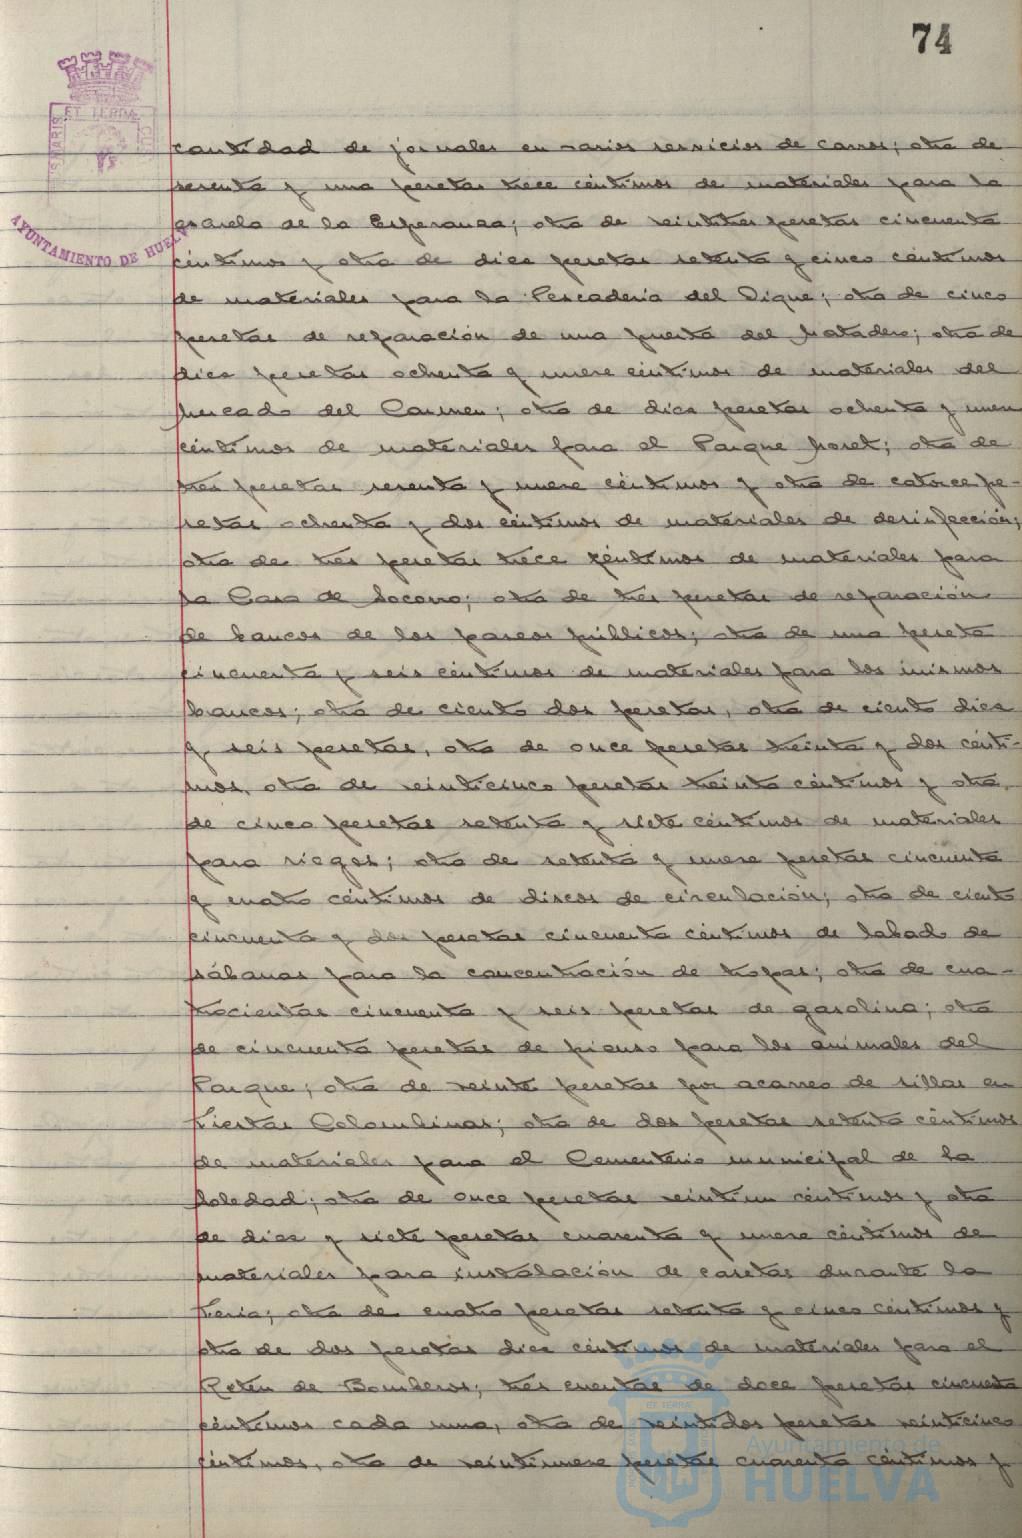 74
ET TERRÆ
AYUNTAMIENTO DE HUELVA
cantidad de jornales en varios servicios de carros; otra de
sesenta y una pesetas trece céntimos de materiales para la
escuela de la Esperanza; otra de veintitres pesetas cincuenta
céntimos y otra de diez pesetas setenta y cinco céntimos
de materiales para la Pescaderia del Dique; otra de cinco
pesetas de reparación de una puerta del Matadero; otra de
diez pesetas ochenta y nueve céntimos de materiales del
Mercado del Carmen; otra de diez pesetas ochenta y nueve
céntimos de materiales para el Parque Moret; otra de
tres pesetas sesenta y nueve céntimos y otra de catorce pe-
setas ochenta y dos céntimos de materiales de desinfección;
otra de tres pesetas trece céntimos de materiales para
la Casa de Socorro; otra de tres pesetas de reparación
de bancos de los paseos públicos; otra de una peseta
cincuenta y seis céntimos de materiales para los mismos
bancos; otra de ciento dos pesetas, otra de ciento diez
y seis pesetas, otra de once pesetas treinta y dos cénti-
mos, otra de veinticinco pesetas treinta céntimos y otra
de cinco pesetas setenta y siete céntimos de materiales
para riegos; otra de setenta y nueve pesetas cincuenta
y cuatro céntimos de discos de circulación; otra de ciento
cincuenta y dos pesetas cincuenta céntimos de labado de
sábanas para la concentración de tropas; otra de cua-
trocientas cincuenta y seis pesetas de gasolina; otra
de cincuenta pesetas de pienso para los animales del
Parque; otra de veinte pesetas por acarreo de sillas en
Fiestas Colombinas; otra de dos pesetas setenta céntimos
de materiales para el Cementerio municipal de la
Soledad; otra de once pesetas veintiun céntimos y otra
de diez y siete pesetas cuarenta y nueve céntimos de
materiales para instalación de casetas durante la
Feria; otra de cuatro pesetas setenta y cinco céntimos y
otra de dos pesetas diez céntimos de materiales para el
Retén de Bomberos; tres cuentas de doce pesetas cincuenta
céntimos cada una, otra de veintidos pesetas veinticinco
céntimos, otra de veintinueve pesetas cuarenta céntimos y
Ayuntamiento de
HUELVA